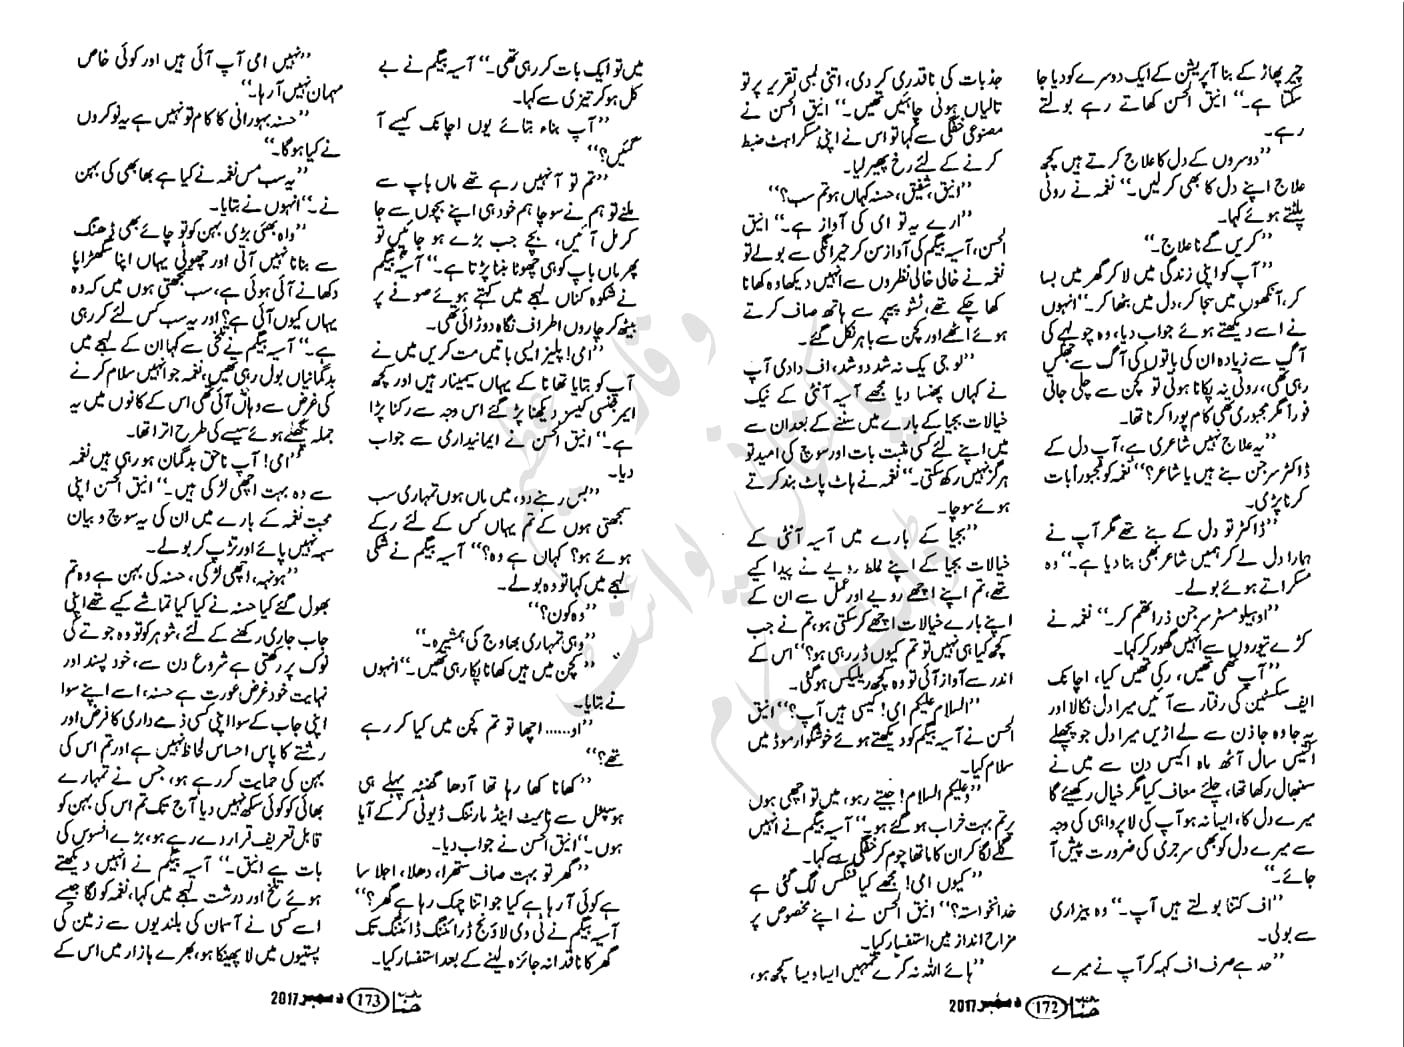 چیر پھاڑ کے بنا آپریشن کے ایک دوسرے کو دیا جا
سکتا ہے۔‘‘ انیق الحسن کھاتے رہے بولتے
رہے۔
’’دوسروں کے دل کا علاج کرتے ہیں کچھ
علاج اپنے دل کا بھی کر لیں۔‘‘ نغمہ نے روٹی
پلٹتے ہوئے کہا۔
’’کریں گے نا علاج۔‘‘
’’آپ کو اپنی زندگی میں لا کر گھر میں بسا
کر، آنکھوں میں سجا کر، دل میں بٹھا کر۔‘‘ انہوں
نے اسے دیکھتے ہوئے جواب دیا، وہ چولہے کی
آگ سے زیادہ ان کی باتوں کی آگ سے جھلس
رہی تھی، روٹی نہ پکانا ہوتی تو کچن سے چلی جاتی
فوراً مگر مجبوری تھی کام پورا کرنا تھا۔
’’یہ علاج نہیں شاعری ہے، آپ دل کے
ڈاکٹر سرجن بنے ہیں یا شاعر؟‘‘ نغمہ کو مجبوراً بات
کرنا پڑی۔
’’ڈاکٹر تو دل کے بنے تھے مگر آپ نے
ہمارا دل لے کر ہمیں شاعر بھی بنا دیا ہے۔‘‘ وہ
مسکراتے ہوئے بولے۔
’’او ہیلو مسٹر سرجن ذرا تھم کر۔‘‘ نغمہ نے
کڑے تیوروں سے انہیں گھور کر کہا۔
’’آپ تھمی تھیں، رکی تھیں کیا، اچانک
ایف سکسٹین کی رفتار سے آئیں میرا دل نکالا اور
یہ جا وہ جاذن سے لے اڑیں میرا دل جو پچھلے
اکتیس سال آٹھ ماہ اکیس دن سے میں نے
سنبھال رکھا تھا، چلئے معاف کیا مگر خیال رکھیئے گا
میرے دل کا، ایسا نہ ہو آپ کی لاپرواہی کی وجہ
سے میرے دل کو بھی سرجری کی ضرورت پیش آ
جائے۔‘‘
’’اف کتنا بولتے ہیں آپ۔‘‘ وہ بیزاری
سے بولی۔
’’حد ہے صرف اف کہہ کر آپ نے میرے
جذبات کی ناقدری کر دی، اتنی لمبی تقریر پر تو
تالیاں ہونی چاہئیں تھیں۔‘‘ انیق الحسن نے
مصنوعی خفگی سے کہا تو اس نے اپنی مسکراہٹ ضبط
کرنے کے لئے رخ پھیر لیا۔
’’انیق، شفیق، حسنہ کہاں ہو تم سب؟‘‘
’’ارے یہ تو امی کی آواز ہے۔‘‘ انیق
الحسن، آسیہ بیگم کی آواز سن کر حیرانگی سے بولے تو
نغمہ نے خالی خالی نظروں سے انہیں دیکھا وہ کھانا
کھا چکے تھے، ٹشو پیپر سے ہاتھ صاف کرتے
ہوئے اٹھے اور کچن سے باہر نکل گئے۔
’’لو جی یک نہ شد دو شد، اف دادی آپ
نے کہاں پھنسا دیا مجھے آسیہ آنٹی کے نیک
خیالات بجیا کے بارے میں سننے کے بعد ان سے
میں اپنے لئے کسی مثبت بات اور سوچ کی امید تو
ہرگز نہیں رکھ سکتی۔‘‘ نغمہ نے ہاٹ پاٹ بند کرتے
ہوئے سوچا۔
’’بجیا کے بارے میں آسیہ آنٹی کے
خیالات بجیا کے اپنے غلط رویے نے پیدا کیے
تھے، تم اپنے اچھے رویے اور عمل سے ان کے
اپنے بارے خیالات اچھے کر سکتی ہو، تم نے جب
کچھ کیا ہی نہیں تو تم کیوں ڈر رہی ہو؟‘‘ اس کے
اندر سے آواز آئی تو وہ کچھ ریلیکس ہو گئی۔
’’السلام علیکم امی! کیسی ہیں آپ؟‘‘ انیق
الحسن نے آسیہ بیگم کو دیکھتے ہوئے خوشگوار موڈ میں
سلام کیا۔
’’وعلیکم السلام! جیتے رہو، میں تو اچھی ہوں
پر تم بہت خراب ہو گئے ہو۔‘‘ آسیہ بیگم نے انہیں
گلے لگا کر ان کا ماتھا چوم کر خفگی سے کہا۔
’’کیوں امی! مجھے کیا فنگس لگ گئی ہے
خدانخواستہ؟‘‘ انیق الحسن نے اپنے مخصوص پر
مزاح انداز میں استفسار کیا۔
’’ہائے اللہ نہ کرے تمہیں ایسا ویسا کچھ ہو،
حنا 172 دسمبر 2017
میں تو ایک بات کر رہی تھی۔‘‘ آسیہ بیگم نے بے
کل ہو کر تیزی سے کہا۔
’’آپ بناء بتائے یوں اچانک کیسے آ
گئیں؟‘‘
’’تم تو آ نہیں رہے تھے ماں باپ سے
ملنے تو ہم نے سوچا ہم خود ہی اپنے بچوں سے جا
کر مل آئیں، بچے جب بڑے ہو جائیں تو
پھر ماں باپ کو ہی چھوٹا بننا پڑتا ہے۔‘‘ آسیہ بیگم
نے شکوہ کناں لہجے میں کہتے ہوئے صوفے پر
بیٹھ کر چاروں اطراف نگاہ دوڑائی تھی۔
’’امی! پلیز ایسی باتیں مت کریں میں نے
آپ کو بتایا تھا نا کے یہاں سیمینار ہیں اور کچھ
ایمرجنسی کیسز دیکھنا پڑ گئے اس وجہ سے رکنا پڑا
ہے۔‘‘ انیق الحسن نے ایمانیداری سے جواب
دیا۔
’’بس رہنے دو، میں ماں ہوں تمہاری سب
سمجھتی ہوں کے تم یہاں کس کے لئے رکے
ہوئے ہو؟ کہاں ہے وہ؟‘‘ آسیہ بیگم نے شکی
لہجے میں کہا تو وہ بولے۔
’’وہ کون؟‘‘
’’وہی تمہاری بھاوج کی ہمشیرہ۔‘‘
’’کچن میں ہیں کھانا پکا رہی تھیں۔‘‘ انہوں
نے بتایا۔
’’او...... اچھا تو تم کچن میں کیا کر رہے
تھے؟‘‘
’’کھانا کھا رہا تھا آدھا گھنٹہ پہلے ہی
ہوسپٹل سے نائیٹ اینڈ مارننگ ڈیوٹی کر کے آیا
ہوں۔‘‘ انیق الحسن نے جواب دیا۔
’’گھر تو بہت صاف ستھرا، دھلا، اجلا سا
ہے کوئی آ رہا ہے کیا جو اتنا چمک رہا ہے گھر؟‘‘
آسیہ بیگم نے ٹی وی لاؤنج ڈرائننگ ڈائننگ تک
گھر کا ناقدانہ جائزہ لینے کے بعد استفسار کیا۔
’’نہیں امی آپ آئی ہیں اور کوئی خاص
مہمان نہیں آ رہا۔‘‘
’’حسنہ بہورانی کا کام تو نہیں ہے یہ نوکروں
نے کیا ہو گا۔‘‘
’’یہ سب مس نغمہ نے کیا ہے بھابھی کی بہن
نے۔‘‘ انہوں نے بتایا۔
’’واہ بھئی بڑی بہن کو تو چائے بھی ڈھنگ
سے بنانا نہیں آتی اور چھوٹی یہاں اپنا سگھڑاپا
دکھانے آئی ہوئی ہے، سب سمجھتی ہوں میں کہ وہ
یہاں کیوں آئی ہے؟ اور یہ سب کس لئے کر رہی
ہے۔‘‘ آسیہ بیگم نے تلخی سے کہا ان کے لہجے میں
بدگمانیاں بول رہی تھیں، نغمہ جو انہیں سلام کرنے
کی غرض سے وہاں آئی تھی اس کے کانوں میں یہ
جملہ پگھلے ہوئے سیسے کی طرح اترا تھا۔
’’امی! آپ ناحق بدگمان ہو رہی ہیں نغمہ
سے وہ بہت اچھی لڑکی ہیں۔‘‘ انیق الحسن اپنی
محبت نغمہ کے بارے میں ان کی یہ سوچ و بیان
سہہ نہیں پائے اور تڑپ کر بولے۔
’’ہونہہ، اچھی لڑکی، حسنہ کی بہن ہے وہ تم
بھول گئے کیا حسنہ نے کیا کیا تماشے کیے تھے اپنی
جاب جاری رکھنے کے لئے، شوہر کو تو وہ جوتے کی
نوک پر رکھتی ہے شروع دن سے، خود پسند اور
نہایت خود غرض عورت ہے حسنہ، اسے اپنے سوا
اپنی جاب کے سوا اپنی کسی ذمے داری کا فرض اور
رشتے کا پاس احساس لحاظ نہیں ہے اور تم اس کی
بہن کی حمایت کر رہے ہو، جس نے تمہارے
بھائی کو کوئی سکھ نہیں دیا آج تک تم اس کی بہن کو
قابل تعریف قرار دے رہے ہو، بڑے افسوس کی
بات ہے انیق۔‘‘ آسیہ بیگم نے انہیں دیکھتے
ہوئے تلخ اور درشت لہجے میں کہا، نغمہ کو لگا جیسے
اسے کسی نے آسمان کی بلندیوں سے زمین کی
پستیوں میں لا پھینکا ہو، بھرے بازار میں اس کے
حنا 173 دسمبر 2017